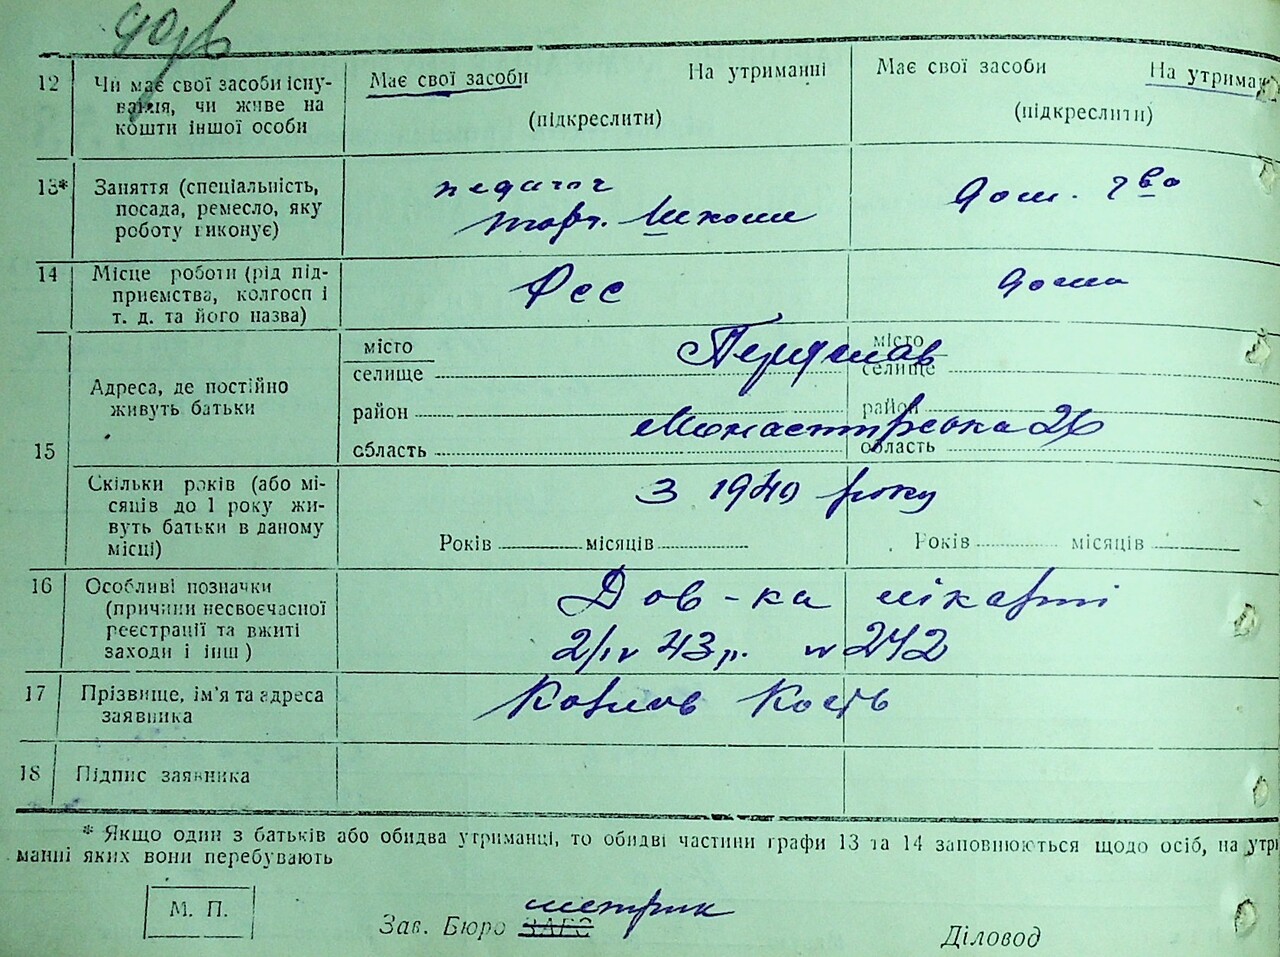 12 Чи має свої засоби існу-
вання, чи живе на
кошти іншої особи
Має свої засоби На утриманні
(підкреслити)
Має свої засоби На утриман
(підкреслити)
13* Заняття (спеціальність,
посада, ремесло, яку
роботу виконує)
педагог
торг. школи
дом. г-во
14 Місце роботи (рід під-
приємства, колгосп і
т. д. та його назва)
дома
15 Адреса, де постійно
живуть батьки
місто
селище
район
область
місто
селище
район
область
Переяслав
Монастирська 26
Скільки років (або мі-
сяців до 1 року жи-
вуть батьки в даному
місці)
з 1940 року
Років місяців
Років місяців
16 Особливі позначки
(причини несвоєчасної
реєстрації та вжиті
заходи і інш)
Дов-ка лікарні
2/IV 43 р. N 242
17 Прізвище, ім'я та адреса
заявника
Кость
18 Підпис заявника
* Якщо один з батьків або обидва утриманці, то обидві частини графи 13 та 14 заповнюються щодо осіб, на утри
манні яких вони перебувають
М. П.
метрик
Зав. Бюро ЗАГС
Діловод